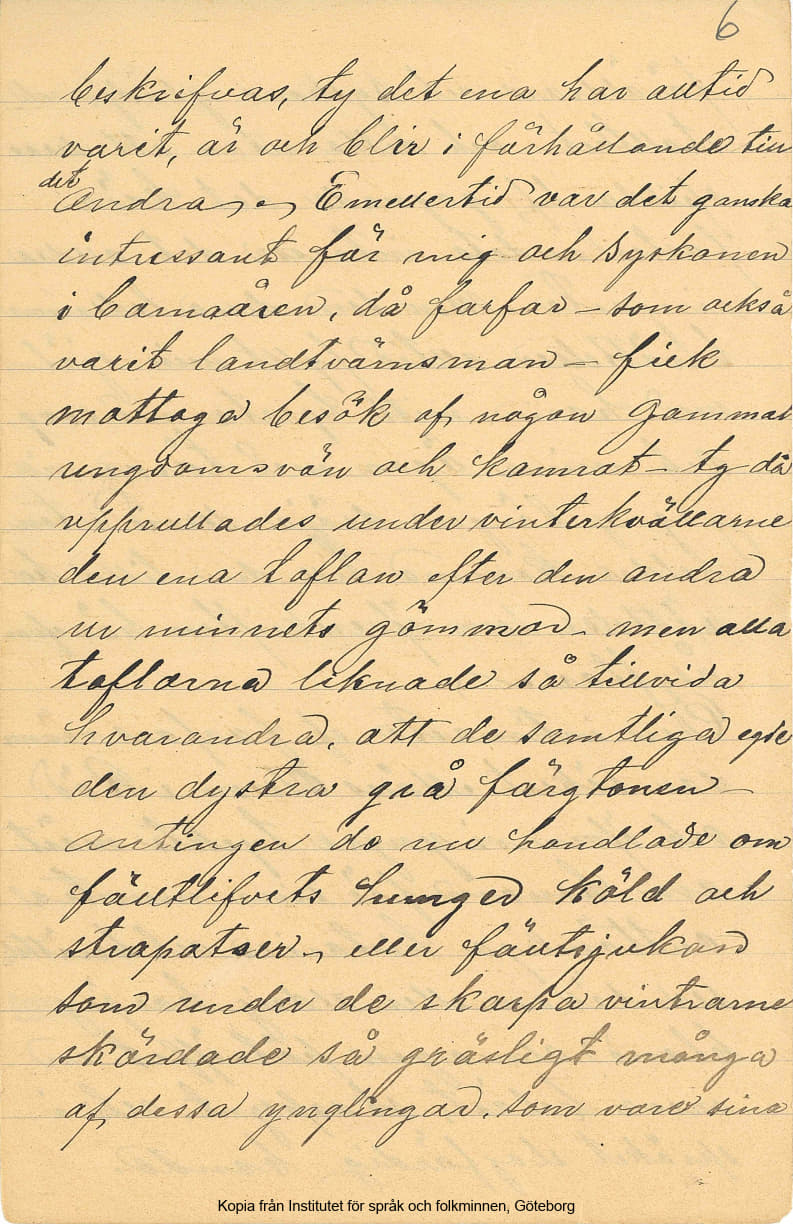 6
beskrifvas, ty det ena har alltid
varit, är och blir i förhållande till
det
Andra, - Emellertid var det ganska
intressant för mig och Syskonen
i barnaåren, då farfar - som också
varit landtvärnsman - fick
mottaga besök af någon Gammal
ungdomsvän och kamrat - ty då
upprullades under vinterkvällarne
den ena taflan efter den andra
ur minnets gömmor - men alla
taflorna liknade så tillvida
hvarandra, att de samtliga egde
den dystra grå färgtonen -
antingen de nu handlade om
fältlifvets hunger köld och
strapatser, eller fältsjukan
som under de skarpa vintrarne
skördade så gräsligt många
af dessa ynglingar, som voro sina
Kopia från Institutet för språk och folkminnen, Göteborg